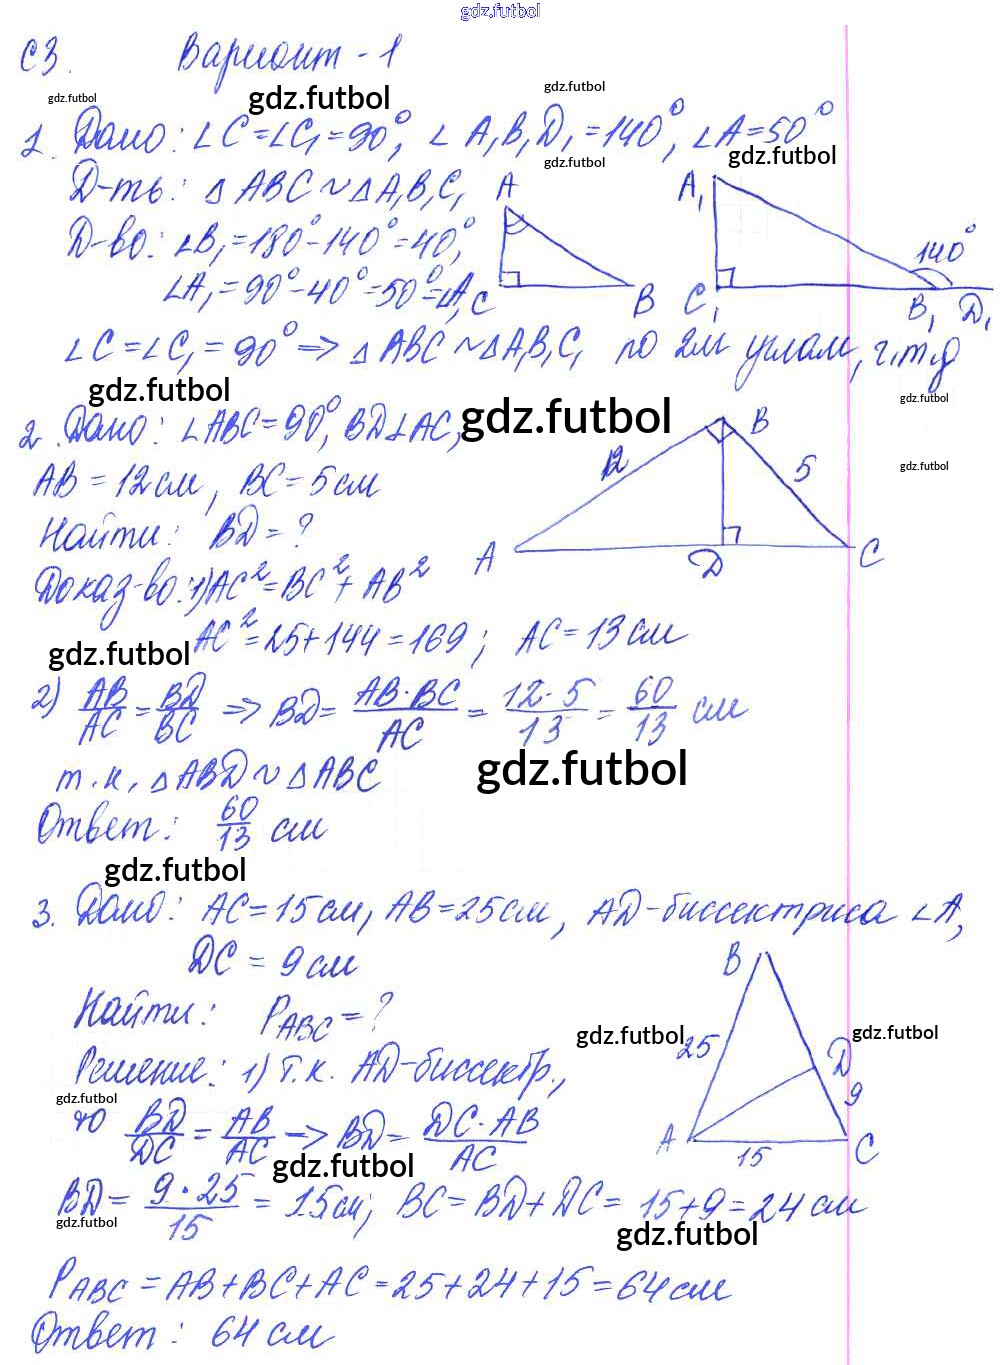 gdz.futbol
С3. Вариант - 1
gdz.futbol gdz.futbol gdz.futbol
1. Дано: ∠C = ∠C₁ = 90°, ∠A₁B₁D₁ = 140°, ∠A = 50°
gdz.futbol gdz.futbol
Д-ть: △ABC ~ △A₁B₁C₁
Д-во: ∠B₁ = 180° - 140° = 40°,
∠A₁ = 90° - 40° = 50° = ∠A,
A C B
A₁ C₁ B₁ D₁ 140°
∠C = ∠C₁ = 90° => △ABC ~ △A₁B₁C₁ по 2м углам, ч.т.д
gdz.futbol gdz.futbol gdz.futbol
2. Дано: ∠ABC = 90°, BD⊥AC,
gdz.futbol
AB = 12 см, BC = 5 см
Найти: BD = ?
A B C D 12 5
Доказ-во: 1) AC² = BC² + AB²
AC² = 25 + 144 = 169; AC = 13 см
gdz.futbol
2) AB/AC = BD/BC => BD = AB·BC/AC = 12·5/13 = 60/13 см
т.к. △ABD ~ △ABC
gdz.futbol
Ответ: 60/13 см
gdz.futbol
3. Дано: AC = 15 см, AB = 25 см, AD - биссектриса ∠A,
DC = 9 см
Найти: P ABC = ?
gdz.futbol gdz.futbol
Решение: 1) Т.к. AD - биссектр.,
gdz.futbol
то BD/DC = AB/AC => BD = DC·AB/AC
B 25 D 9 A 15 C
gdz.futbol
BD = 9·25/15 = 15 см; BC = BD + DC = 15 + 9 = 24 см
gdz.futbol gdz.futbol
P ABC = AB + BC + AC = 25 + 24 + 15 = 64 см
Ответ: 64 см